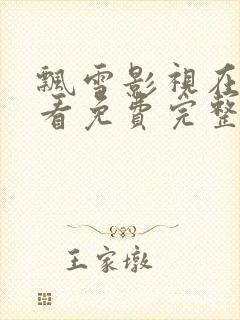 飄雪影視在
看免費完整
王家墩